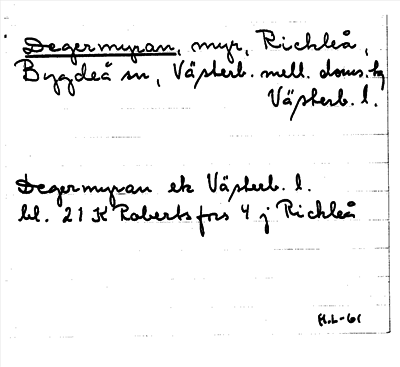 Degermyran, myr, Richleå,
Bygdeå sn, Västerb. mell. doms.hg
Västerb. l.
Degermyran ek Västerb. l.
bl. 21 K Robertsfors 4 j Richleå
H.L-61